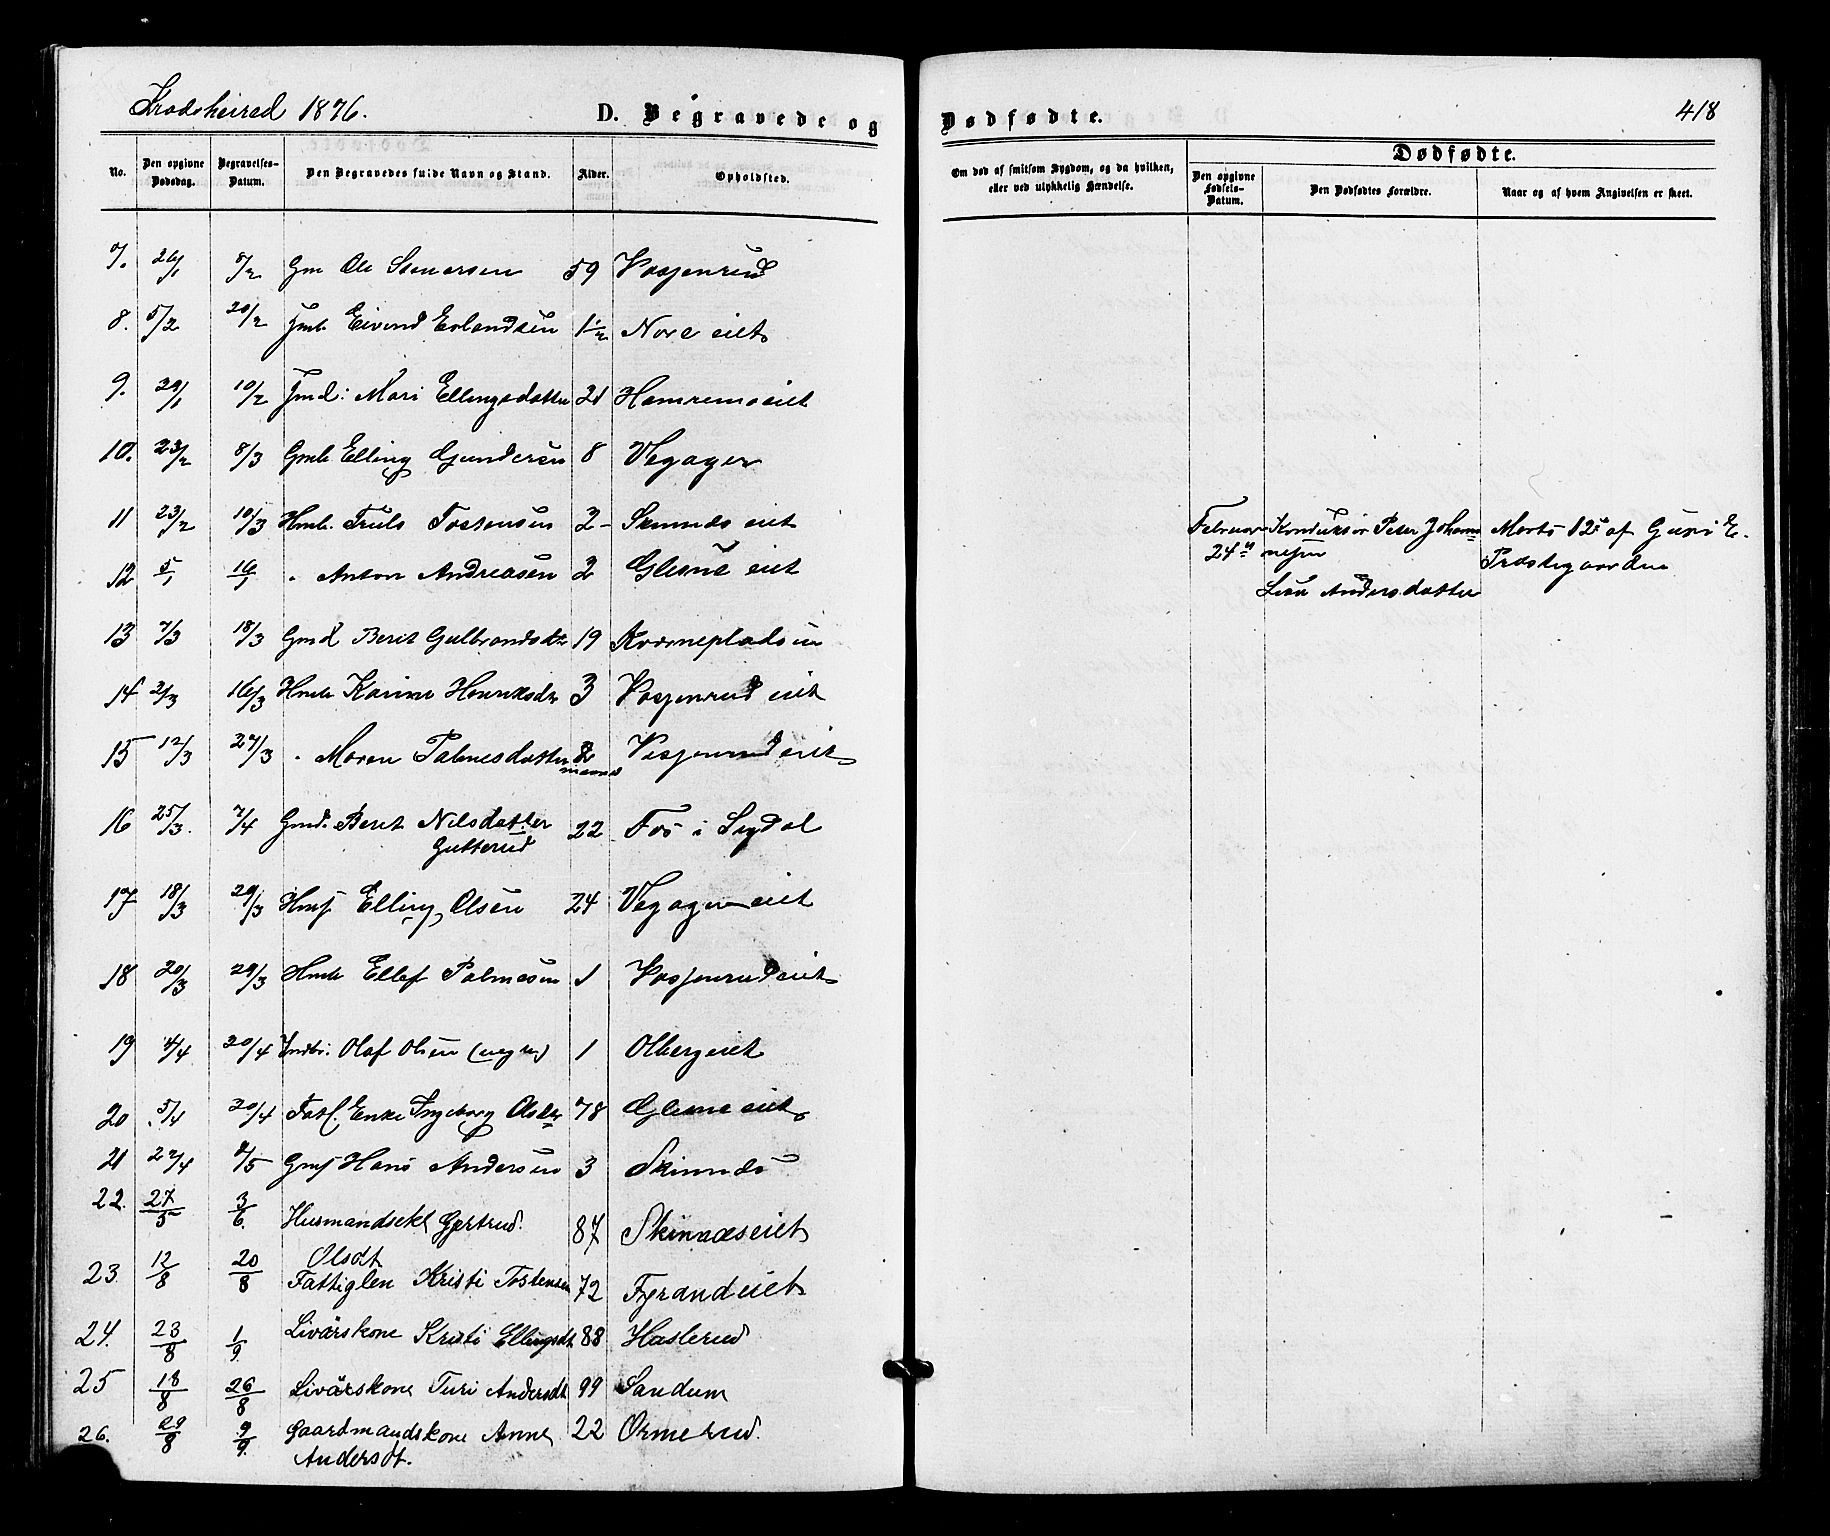 Krødsherred 1876. D. Begravede og Dødfødte. 418
No. Den opgivne Dødsdag. Begravelses-Datum. Den Begravedes fulde Navn og Stand. Alder. Opholdsted. Om død af smitsom Sygdom, og da hvilken, eller ved ulykkelig Hændelse. Dødfødte.
Den opgivne Fødsels-Datum. Den Dødfødtes Forældre. Naar og af hvem Angivelsen er skeet.
7. 26/1 8/2 Gm Ole Stenersen 59
8. 5/2 20/2 Eivind Erlandsen 1 1/2 Nore eiet
9. 29/1 10/2 Mari Ellingsdatter 21 Hamremoeiet
10. 23/2 8/3 Gmb Elling Gundersen 8 Vegager
11 23/2 10/3 Hmb. Truls Tostensen 2 - Skinnds eiet
12 5/1 16/1 " Anton Andreasen 2 Glesne eiet
13 7/3 18/3 Gmd Berit Gulbrandsdtr 19 Kværnepladsen
14 2/3 16/3 Hmb Karine 3 eiet
15 12/3 27/3 " Maren Palmesdatter 2 maaned eiet
16 25/3. 7/4 Gmd. Berit Nilsdatter 22 Fos i Sigdal
Gutterud
17 18/3 29/3 Hmf Elling Olsen 24 Vegager eiet
18 20/3 29/3 Hmb Ellef Palmesen 1
19 4/4 20/4 Indb: Olaf Olsen 1 Olbergeiet
20 5/4 20/4 Fatl. Enke Ingeborg Olsdtr 78 Glesne eiet
21 22/4 9/5 Gmf Hans Andersen 3 Skinnds
22. 27/5 3/6. Husmandsekf Gjertrud. 87 Skinnæseiet
Olsdt
23. 12/8 20/8 Fattiglen Kristi Tostensen 72 Fyrandeiet
24. 23/8 1/9. Livørskone Kristi Ellingsdt 88 Haslerud
25 18/8 26/8 Livørskone Turi Andersdt 99 Sandum
26. 29/8 9/9. Gaardmandskone Anne 22 Ormerud.
Andersdt.
Februar Konduktør Peter Johan- Marts 12te af Guri E.
24de nesen Præstegaarden
Lise Andersdatter